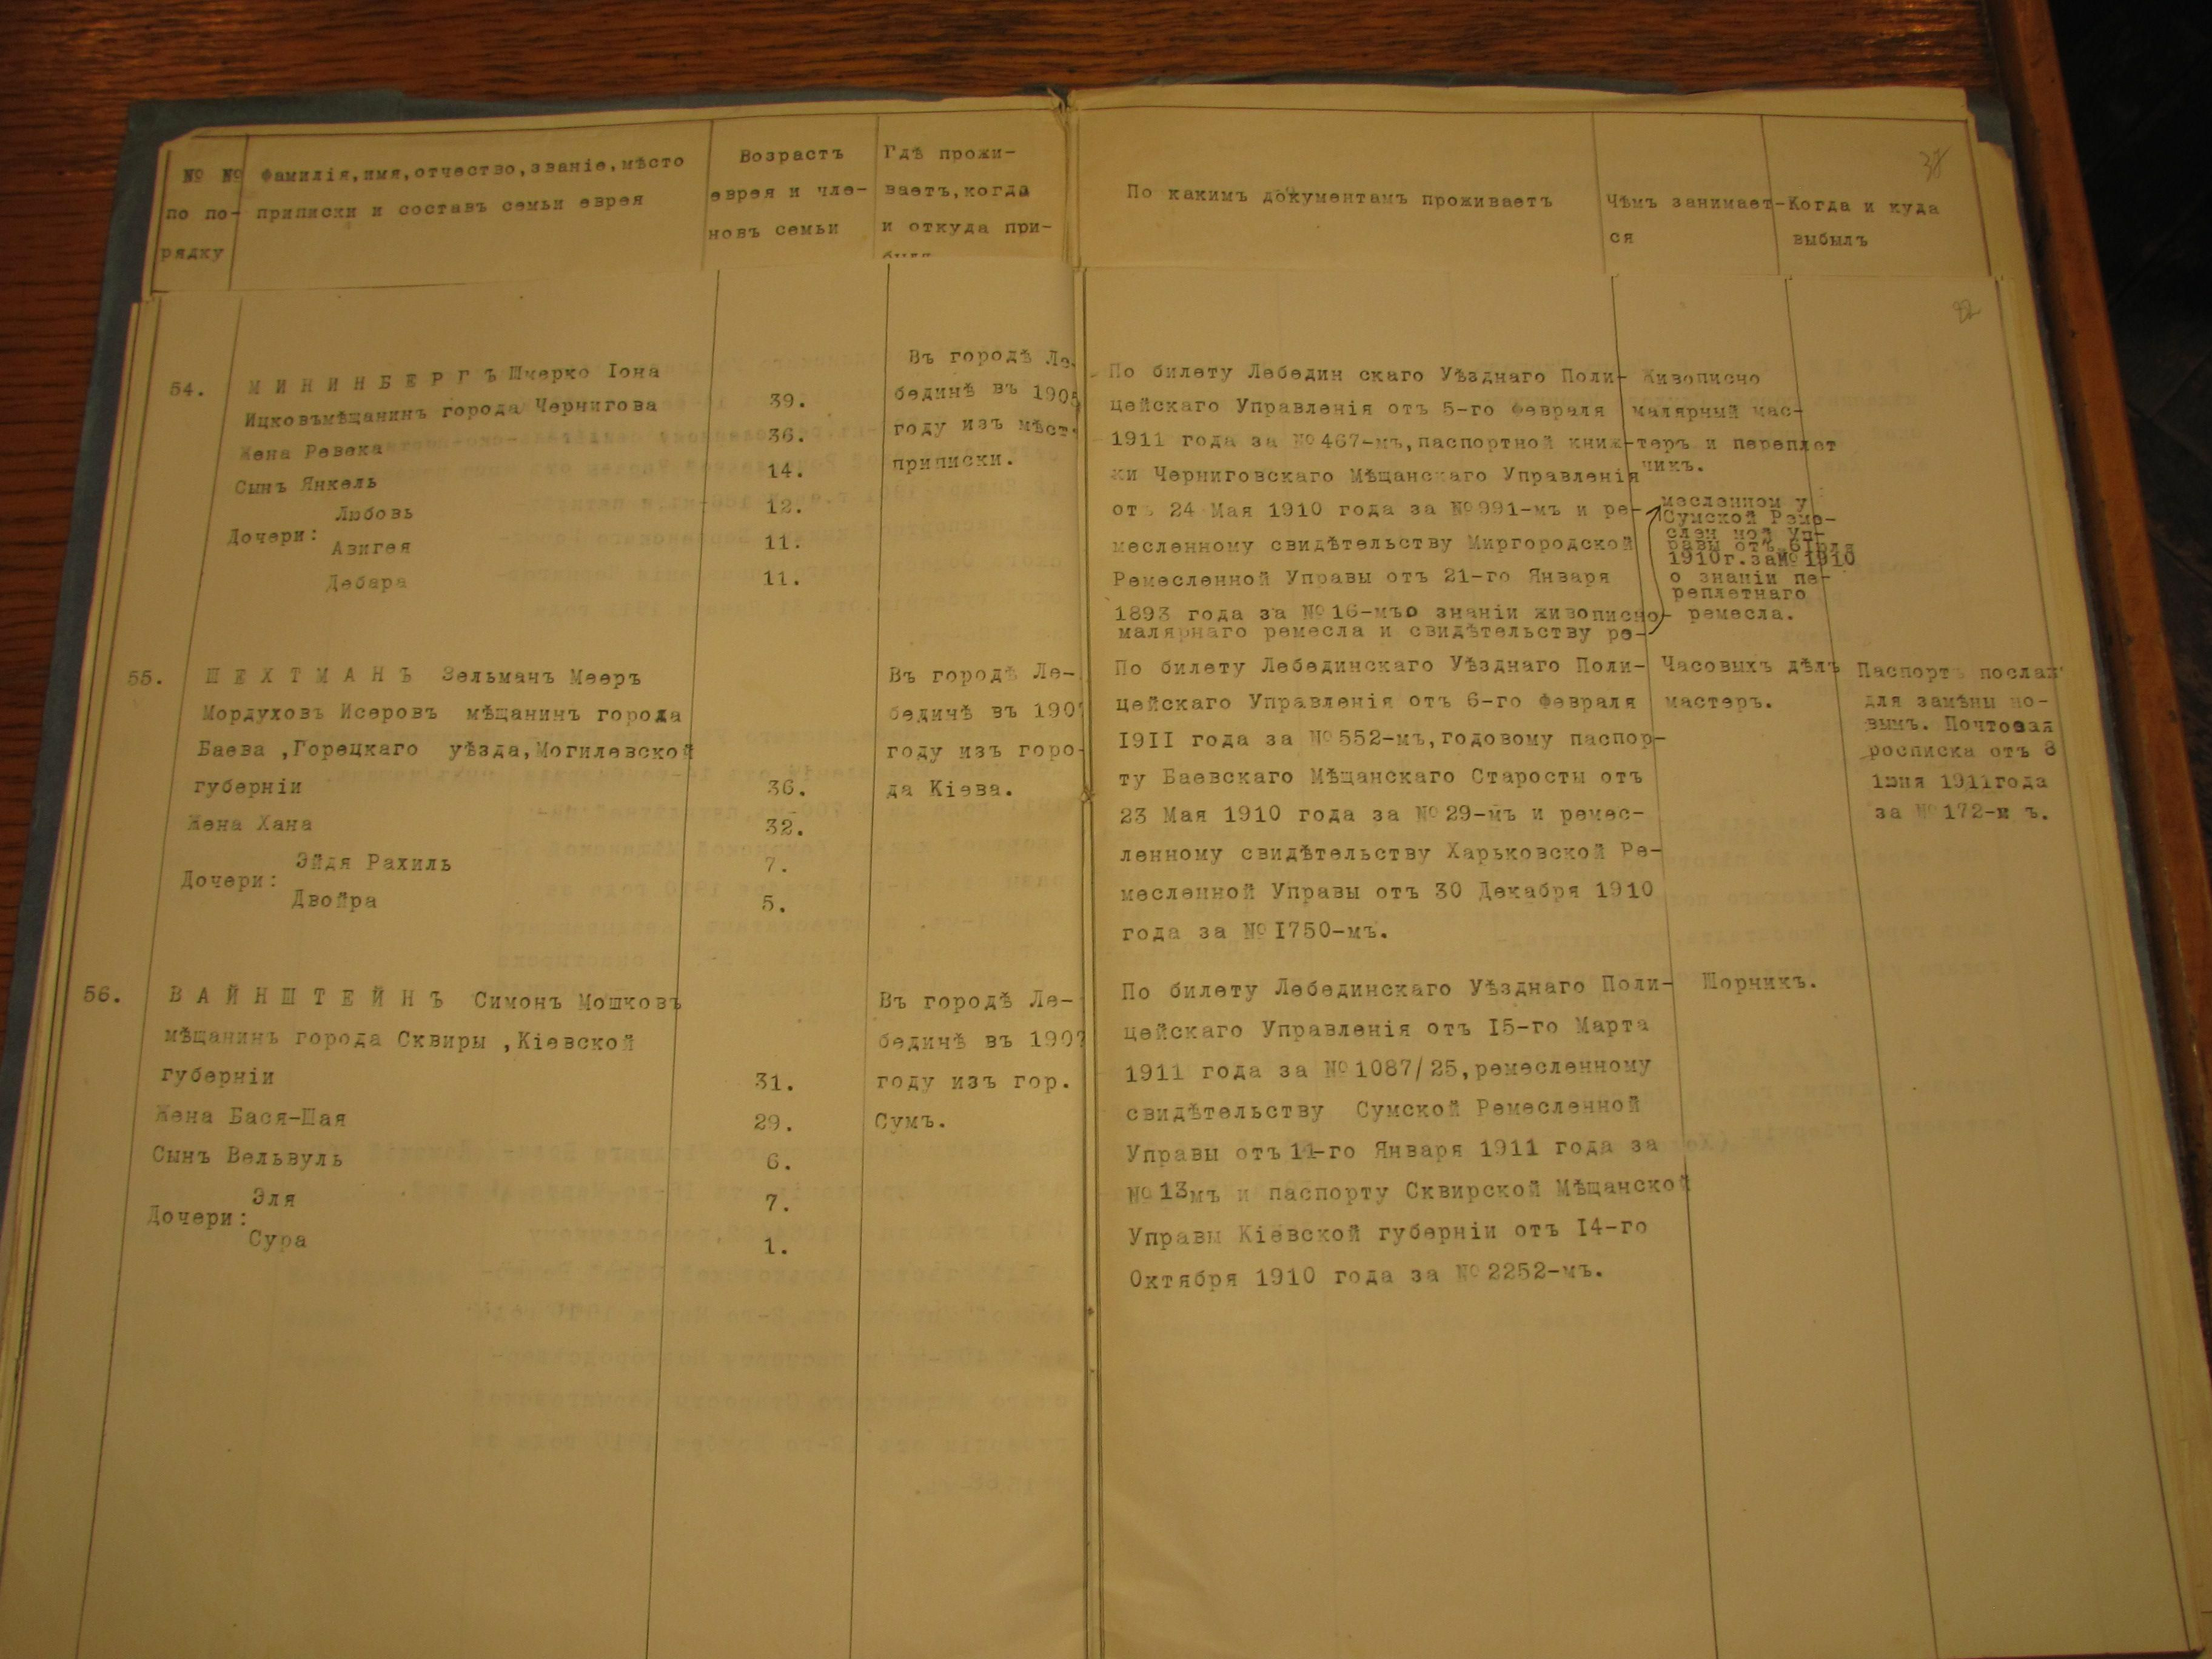 № №
по по-
рядку
Фамилія,имя,отчество,званіе,мѣсто
приписки и составъ семьи еврея
Возрастъ
еврея и чле-
новъ семьи
Гдѣ прожи-
ваетъ,когда
и откуда при-
По какимъ документамъ проживаетъ
Чѣмъ занимает-
ся
Когда и куда
выбылъ
54.
М И Н И Н Б Е Р Г Ъ Шмерко Іона
Ицковъмѣщанинъ города Чернигова
Жена Ревека
Сынъ Янкель
Дочери:
Любовь
Авигея
Дебара
39.
36.
14.
12.
11.
11.
Въ городѣ Ле-
бединѣ въ 1905
году изъ мѣст.
приписки.
По билету Лебедин скаго Уѣзднаго Поли-
цейскаго Управленія отъ 5-го Февраля
1911 года за №467-мъ,паспортной книж-
ки Черниговскаго Мѣщанскаго Управленія
отъ 24 Мая 1910 года за №991-мъ и ре-
месленному свидѣтельству Миргородской
Ремесленной Управы отъ 21-го Января
1893 года за №16-мъо знаніи живописно-
малярнаго ремесла и свидѣтельству ре-
Живописно
малярный мас-
теръ и переплет
чикъ.
месленной у
Сумской Реме-
слен ной Уп-
равы отъ
1910г.за№1910
о знаніи пе-
реплетнаго
ремесла.
55.
Ш Е Х Т М А Н Ъ Зельманъ Мееръ
Мордуховъ Исеровъ мѣщанинъ города
Баева ,Горецкаго уѣзда,Могилевской
губерніи
Жена Хана
Дочери:
Эйдя Рахиль
Двойра
36.
32.
7.
5.
Въ городѣ Ле-
бединѣ въ 190
году изъ горо-
да Кіева.
По билету Лебединскаго Уѣзднаго Поли-
цейскаго Управленія отъ 6-го Февраля
I9II года за №552-мъ,годовому паспор-
ту Баевскаго Мѣщанскаго Старосты отъ
23 Мая 1910 года за №29-мъ и ремес-
ленному свидѣтельству Харьковской Ре-
месленной Управы отъ 30 Декабря 1910
года за №I750-мъ.
Часовыхъ дѣлъ
мастеръ.
Паспортъ послан
для замѣны но-
вымъ. Почтовая
росписка отъ 8
1юня 1911года
за №172-м ъ.
56.
В А Й Н Ш Т Е Й Н Ъ Симонъ Мошковъ
мѣщанинъ города Сквиры ,Кіевской
губерніи
Жена Бася-Шая
Сынъ Вельвуль
Дочери:
Эля
Сура
31.
29.
6.
7.
1.
Въ городѣ Ле-
бединѣ въ 190
году изъ гор.
Сумъ.
По билету Лебединскаго Уѣзднаго Поли-
цейскаго Управленія отъ I5-го Марта
1911 года за №1087/25,ремесленному
свидѣтельству Сумской Ремесленной
Управы отъ 11-го Января 1911 года за
№13мъ и паспорту Сквирской Мѣщанской
Управы Кіевской губерніи отъ I4-го
Октября 1910 года за №2252-мъ.
Шорникъ.